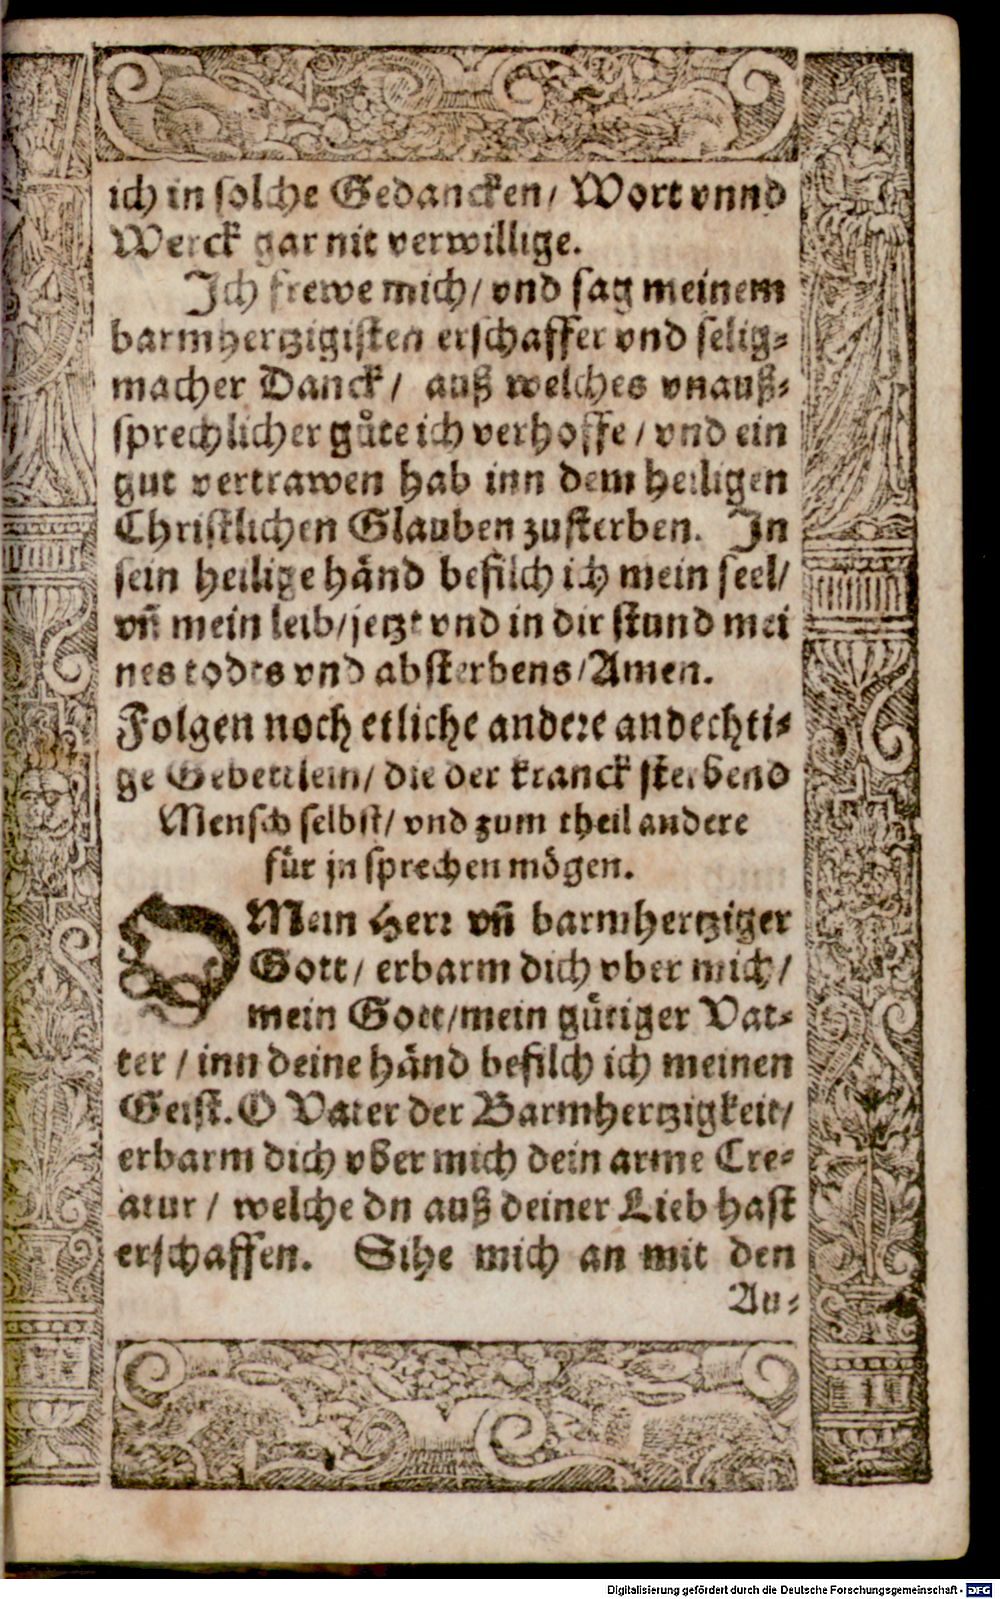 ich in solche Gedancken/ Wort vnnd
Werck gar nit verwillige.
Ich frewe mich/ vnd sag meinem
barmhertzigisten erschaffer vnd selig-
macher Danck/ auß welches vnauß-
sprechlicher gůte ich verhoffe/ vnd ein
gut vertrawen hab inn dem heiligen
Christlichen Glauben zusterben. In
sein heilige händ befilch ich mein seel/
vñ mein leib/jetzt vnd in dir stund mei
nes todts vnd absterbens/Amen.
Folgen noch etliche andere andechti-
ge Gebettlein/ die der kranck sterbend
Mensch selbst/ vnd zum theil andere
für jn sprechen mögen.
O Mein Herr vñ barmhertziger
Gott/ erbarm dich vber mich/
mein Gott/mein gůtiger Vat-
ter/ inn deine händ befilch ich meinen
Geist. O Vater der Barmhertzigkeit/
erbarm dich vber mich dein arme Cre-
atur/ welche dn auß deiner Lieb hast
erschaffen. Sihe mich an mit den
Au-
Digitalisierung gefördert durch die Deutsche Forschungsgemeinschaft - DFG